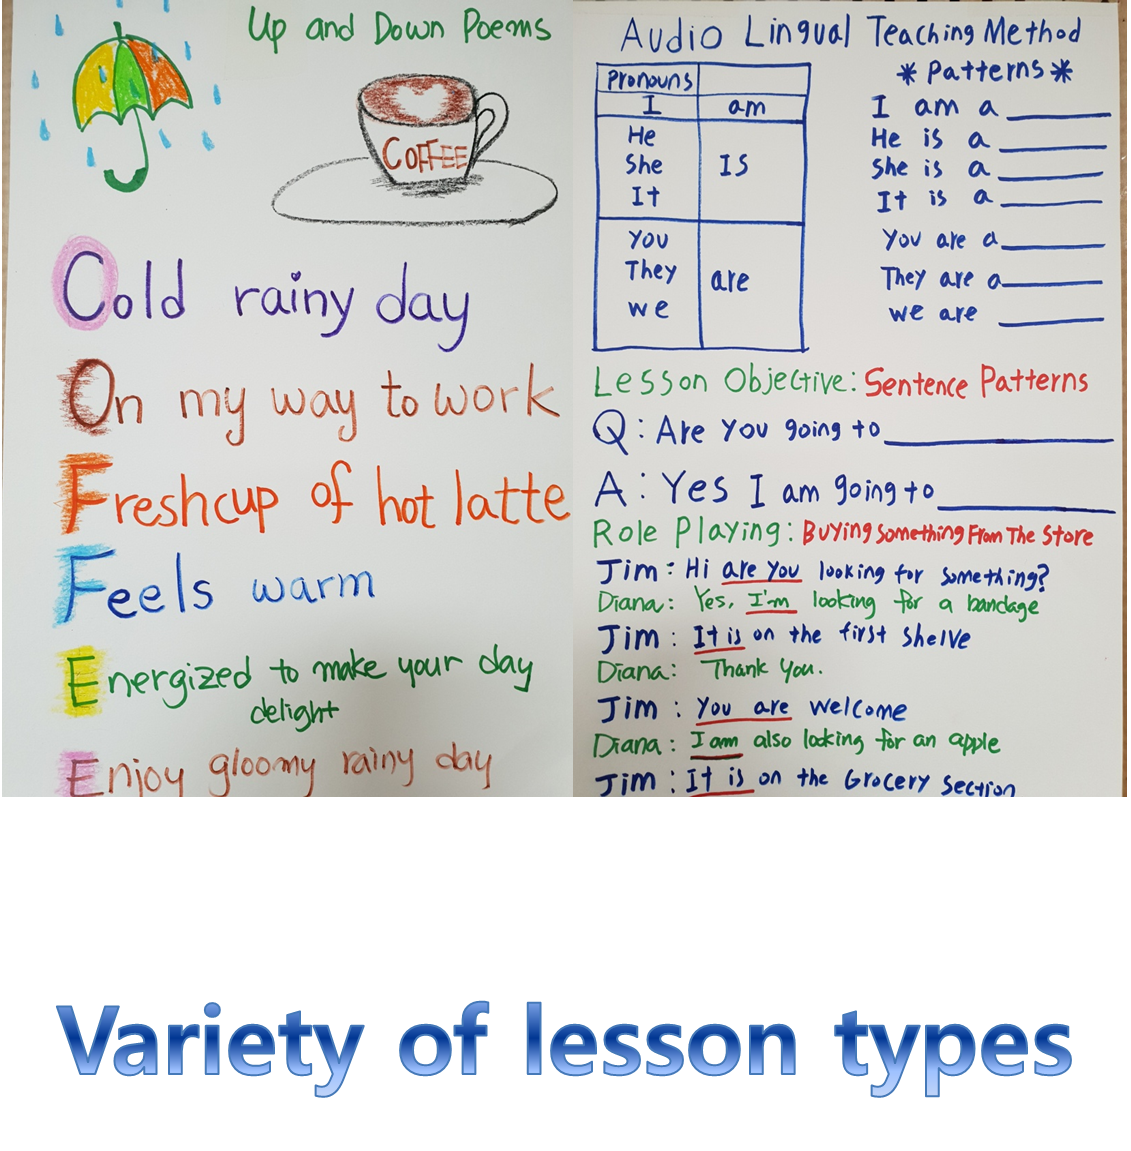 Up and Down Poems
COFFEE
Cold rainy day
On my way to work
Fresh cup of hot latte
Feels warm
Energized to make your day
delight
Enjoy gloomy rainy day
Audio Lingual Teaching Method
Pronouns
I am
He
She IS
It
You
They are
we
* Patterns *
I am a ________
He is a ________
She is a ________
It is a ________
You are a ________
They are a ________
we are ________
Lesson Objective: Sentence Patterns
Q: Are You going to ________
A: Yes I am going to ________
Role Playing: Buying Something From The Store
Jim: Hi are you looking for something?
Diana: Yes, I'm looking for a bandage
Jim: It is on the first shelve
Diana: Thank you.
Jim: You are welcome
Diana: I am also looking for an apple
Jim: It is on the Grocery section
Variety of lesson types